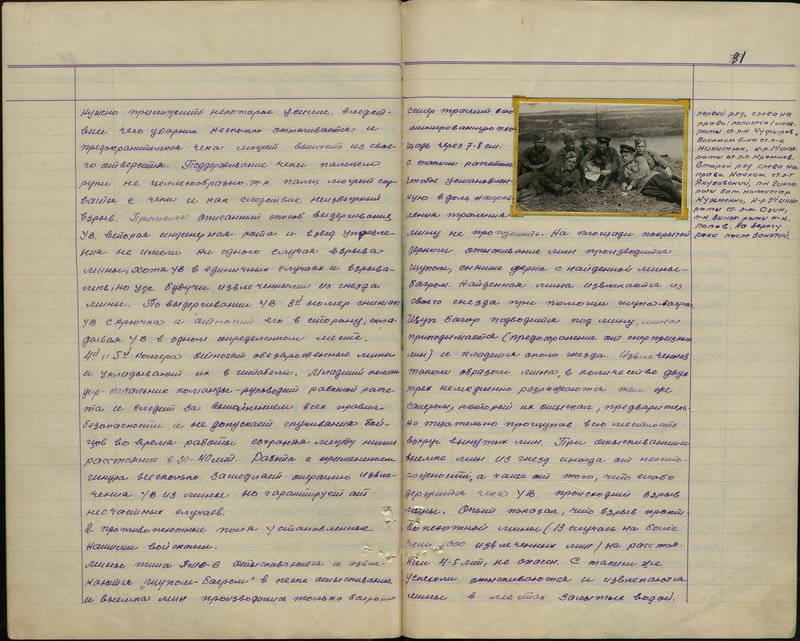 нужно приложить некоторое усилие, вследст-
вии чего ударник несколько оттягивается и
предохранительная чека может выпасть из свое-
го отверстия. Поддерживание чеки пальцем
руки не целесообразно т.к. палец может сор-
ваться с чеки и как следствие неизбежный
взрыв. Применяя описанный способ выдергивания
УВ вторая инженерная рота и взвод управле-
ния не имели ни одного случая взрыва
мины, хотя УВ в единичных случаях и взрыва-
лись, но уже будучи извлеченными из гнезда
мины. По выдергивании УВ 3й номер снимает
УВ с крючка и относит его в сторону, скла-
дывая УВ в одном определенном месте.
4й и 5й номера относят обезвреженные мины
и укладывают их в штабеля. Младший коман-
дир-начальник команды-руководит работой расче-
та и следит за выполнением всех правил
безопасности и не допускает скучивания бой-
цов во время работы сохраняя между ними
расстояние в 30-40мт. Работа с применением
шнура несколько замедляет операцию извле-
чения УВ из мины но гарантирует от
несчастных случаев.
2. противопехотные поля установленные
нашими войсками.
Мины типа ЯМ-5 отыскиваются и извле-
каются "щупом-багром" в песке отыскивание
и выемка мин производилась только багром
81
сапер тралит всю
минированную пло-
щадь через 7-8 см.
с таким расчетом
чтобы установлен-
ную вдоль направ-
ления траления
мину не пропустить. На площади покрытой
дерном отыскивание мин производится
щупом, снятие дерна с найденной мины-
багром. Найденная мина извлекается из
своего гнезда при помощи щупа-багра.
Щуп багор подводится под мину, мина
приподымается (предохранение от сюрпризных
мин) и кладется около гнезда. Извлеченная
таким образом мина, в количестве двух
трех немедленно разряжаются тем же
сапером, который их отыскал, предваритель-
но тщательно прощупав всю местность
вокруг вынутых мин. При отыскивании и
выемке мин из гнезд иногда от неосто-
рожности, а чаще от того, что слабо
держится чека УВ происходит взрыв
мины. Опыт показал, что взрыв проти-
вопехотной мины (13 случаев на более
чем 1000 извлеченных мин) на расстоя-
нии 4-5 мт, не опасен. С таким же
успехом отыскиваются и извлекаются
мины в местах залитых водой.
первый ряд, слева на
право: политрук 1 инж.
роты ст.п-к Чуфыров,
Военком б-на ст.п-к
Никитюк, к-р 1й инж.
роты ст.л-т
Второй ряд слева на
право. Нач.хим. ст.л-т
Якубовский, п-к 2 инж.
роты бат. комиссар
Кузьменко, к-р 3й инж.
роты ст. л-т.
п-к 3 инж. роты п-к.
Попов. На берегу
реки после занятий.